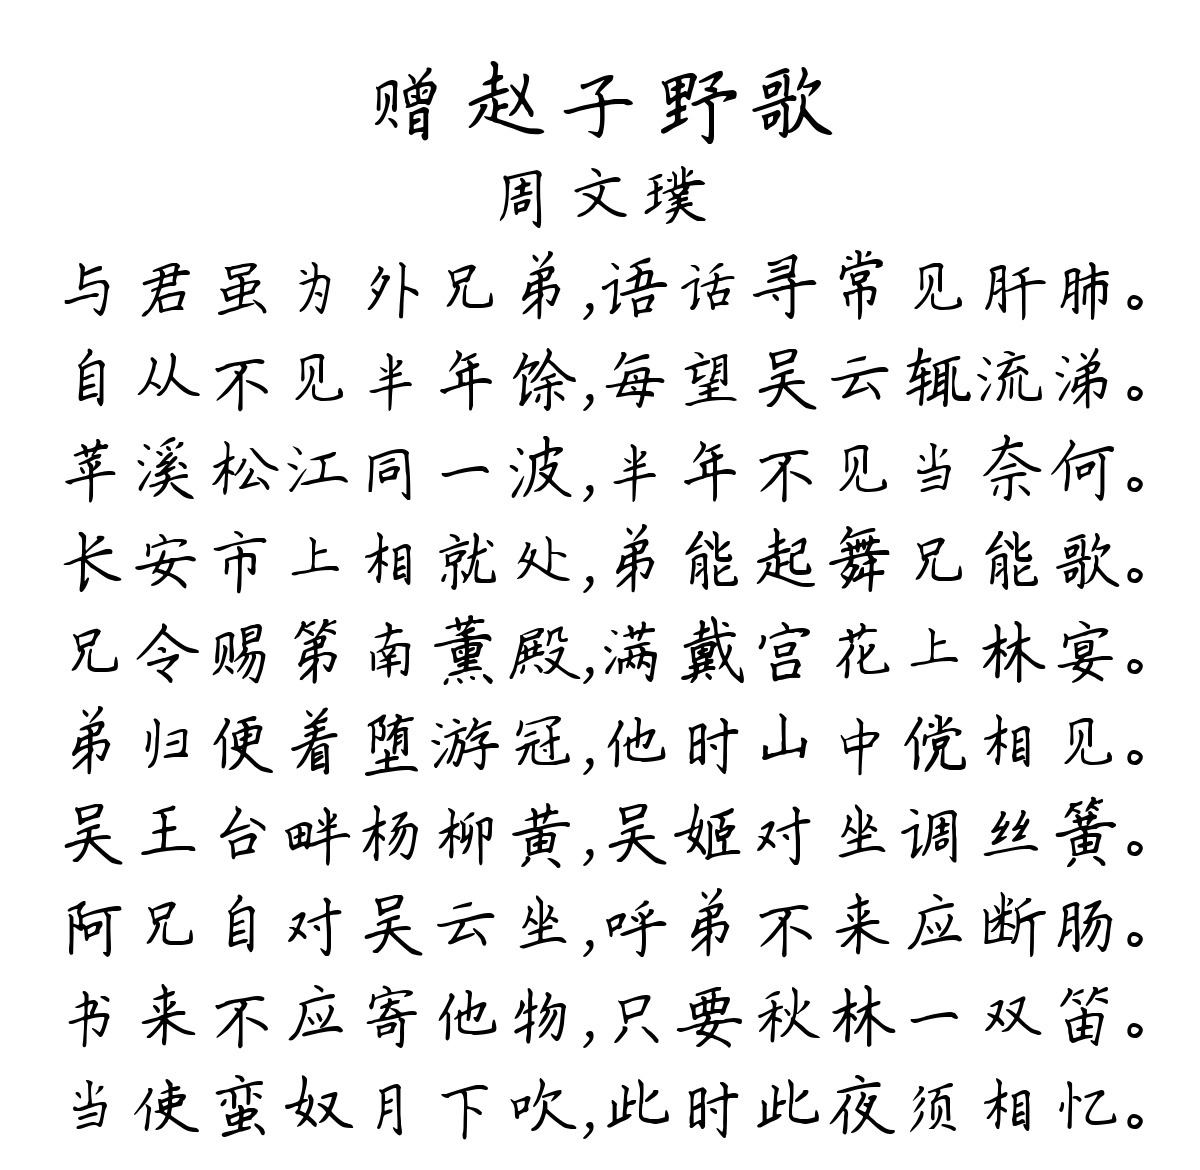 赠赵子野歌
周文璞
与君虽为外兄弟,语话寻常见肝肺。
自从不见半年馀,每望吴云辄流涕。
苹溪松江同一波,半年不见当奈何。
长安市上相就处,弟能起舞兄能歌。
兄令赐第南薰殿,满戴宫花上林宴。
弟归便着堕游冠,他时山中傥相见。
吴王台畔杨柳黄,吴姬对坐调丝簧。
阿兄自对吴云坐,呼弟不来应断肠。
书来不应寄他物,只要秋林一双笛。
当使蛮奴月下吹,此时此夜须相忆。